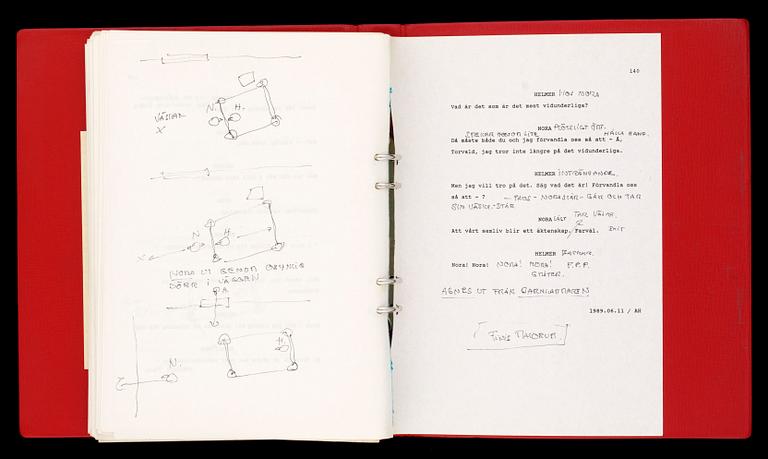 N. H.
VÄSKAN
X
N H
NORA UT GENOM OSYNLIG
DÖRR I VÄGGEN
A
H.
N.
140
HELMER HOS NORA
Vad är det som är det mest vidunderliga?
NORA PLÖTSLIGT ÖTT.
HÅLLA HAND.
Då måste både du och jag förvandla oss så att - Å,
Torvald, jag tror inte längre på det vidunderliga.
HELMER INTRÄNGANDE.
Men jag vill tro på det. Säg vad det är! Förvandla oss
så att - ? - PAUS - NORA STÅR - GÅR OCH TAR
SIN VÄSKA - STÅR
NORA LÅGT TAR VÄSKA.
Att vårt samliv blir ett äktenskap. Farväl. EXIT
HELMER
Nora! Nora! NORA! NORA! F.F.F.
GRÅTER.
AGNES UT FRÅN BARNKAMMAREN
1989.06.11 / AH
FINIS MALORUM